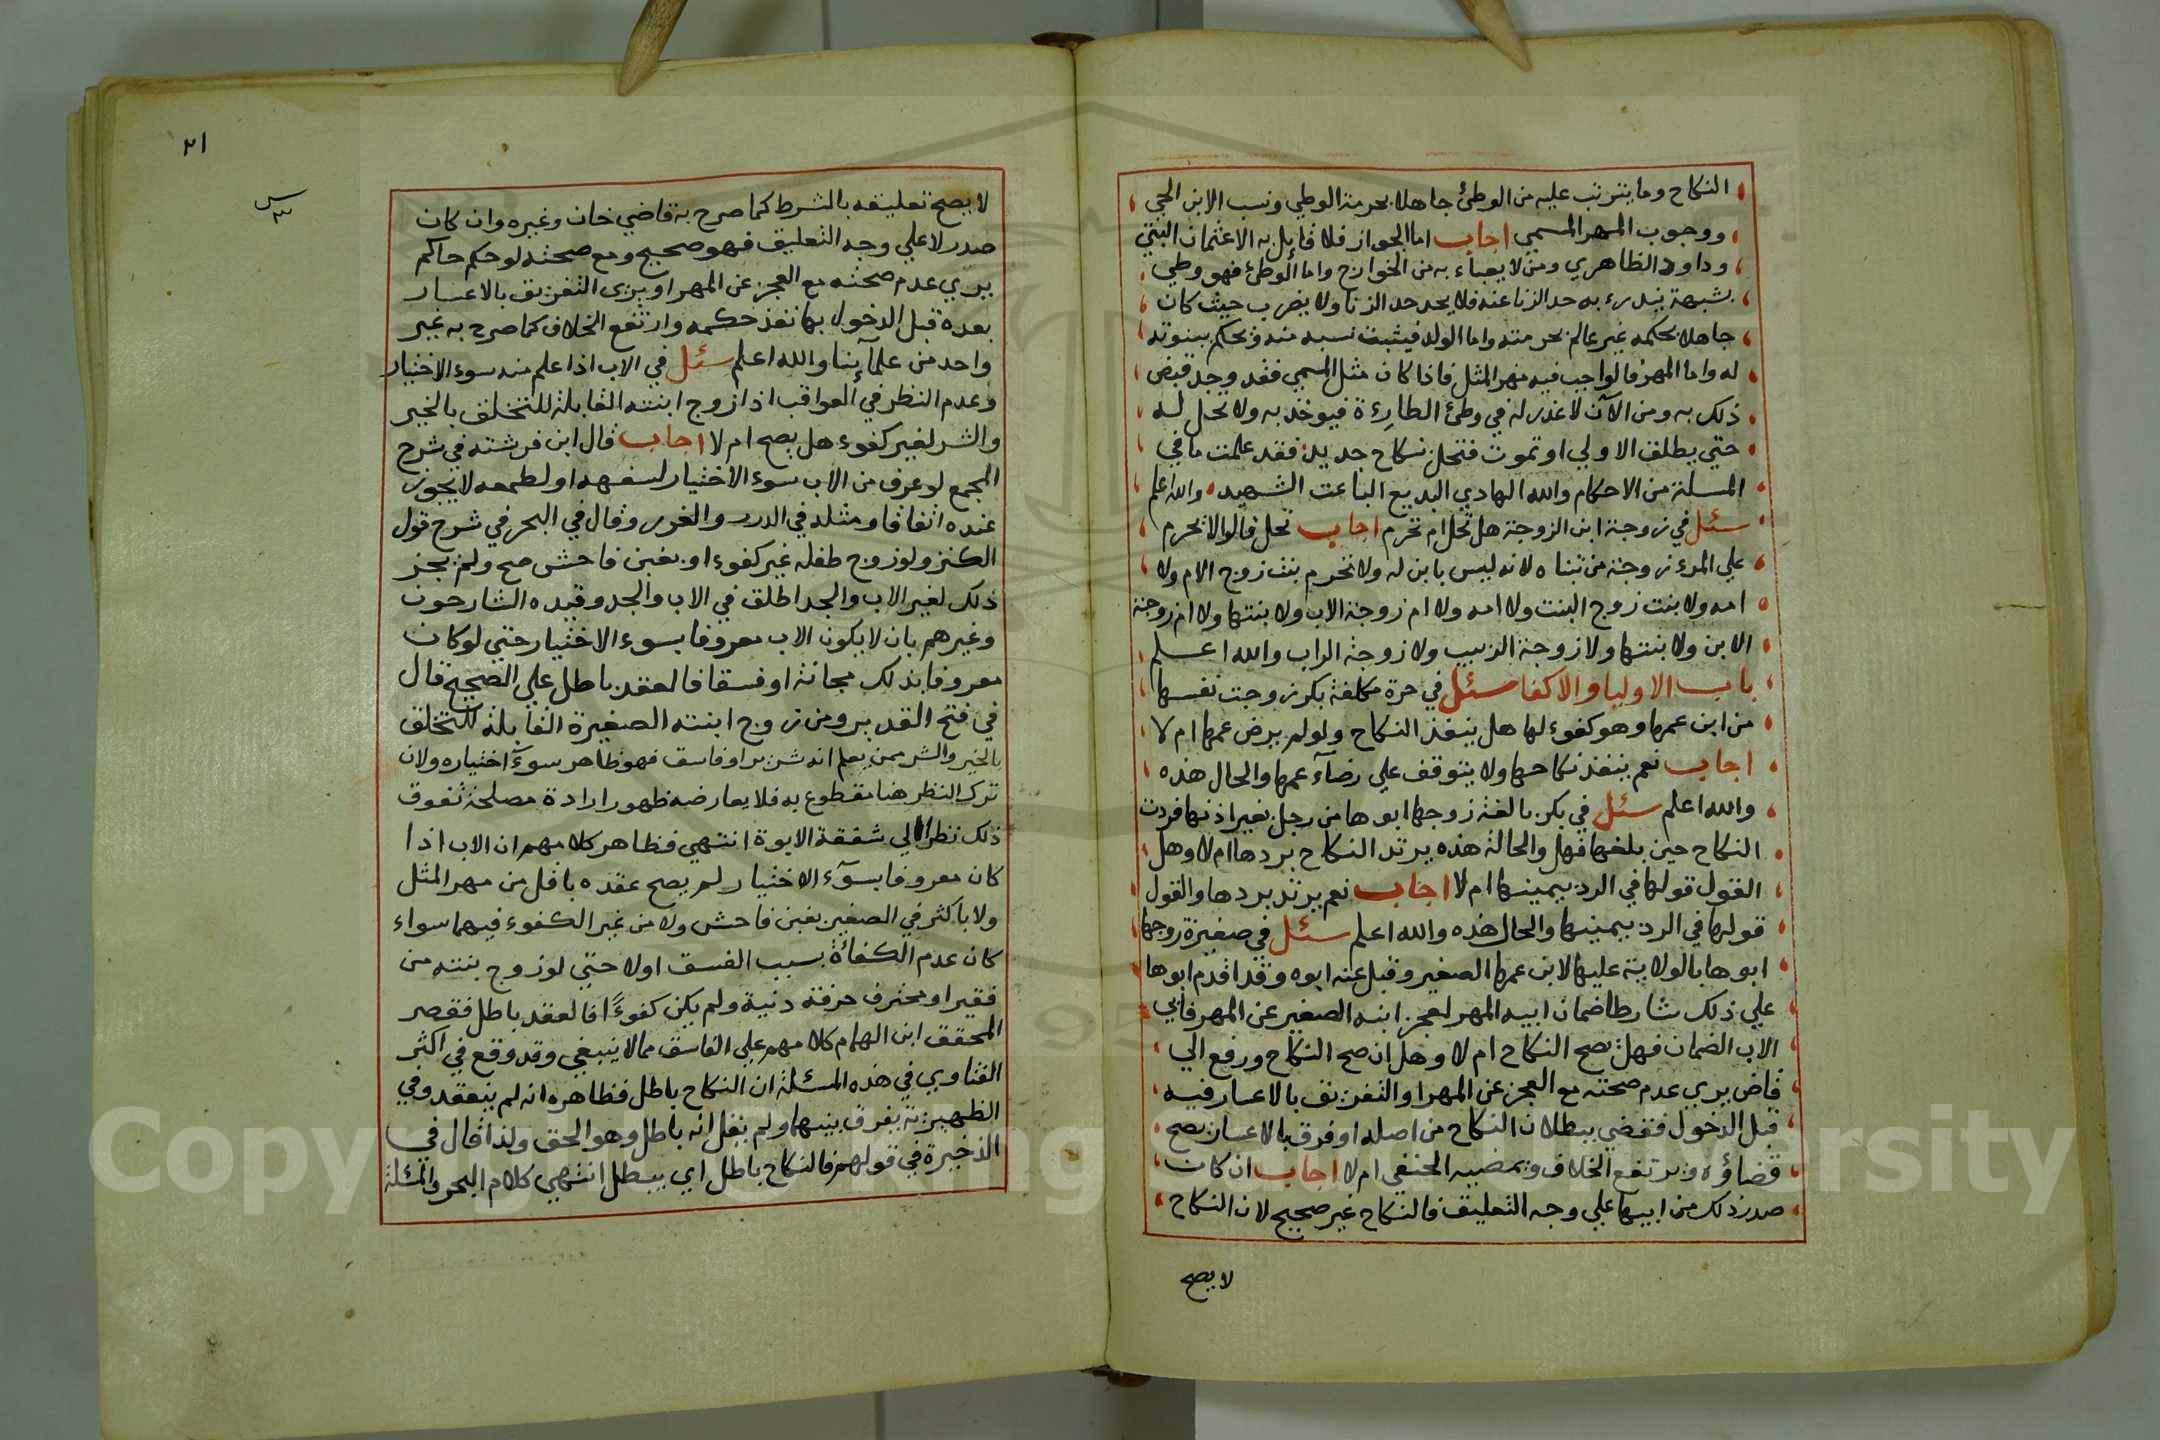 النكاح وما يترتب عليه من الوطئ جاهلا بحرمة الوطي ونسب الابن الحي
ووجوب المهر المسمي اجاب اما الجواز فلا قايل به الا عثمان البتي
وداود الظاهري ومن لا يعباء به من الخوارج واما الوطئ فهو وطي
شبهة يندرء به حد الزنا عنه فلا يحد حد الزنا ولا يضرب حيث كان
جاهلا بحكمه غير عالم بحرمته واما الولد فيثبت نسبه منه ويحكم ببنوته
له واما المهر فالواجب فيه مهر المثل فاذا كان مثل المسمي فقد وجد قبض
ذلك به ومن الآن لا عذر له في وطئ الطارءة فيوخذ به ولا يحل له
حتي يطلق الاولي او تموت فتحل بنكاح جديد فقد علمت ما في
المسلة من الاحكام والله الهادي البديع الباعث الشهيد والله اعلم
سئل في زوجة ابن الزوجة هل تحل ام تحرم اجاب تحل قالوا لا تحرم
علي المرء زوجة من تبناه لانه ليس بابن له ولا تحرم بنت زوج الام ولا
امه ولا بنت زوج البنت ولا امه ولا ام زوجة الاب ولا بنتها ولا ام زوجة
الابن ولا بنتها ولا زوجة الربيب ولا زوجة الراب والله اعلم
باب الاوليا والاكفا سئل في حرة مكلفة بكر زوجت نفسها
من ابن عمها وهو كفوء لها هل ينفذ النكاح ولو لم يرض عمها ام لا
اجاب نعم ينفذ نكاحها ولا يتوقف علي رضآء عمها والحال هذه
والله اعلم سئل في بكر بالغة زوجها ابوها من رجل بغير اذنها فردت
النكاح حين بلغها فهل والحالة هذه يرتد النكاح بردها ام لا وهل
القول قولها في الرد بيمينها ام لا اجاب نعم يرتد بردها والقول
قولها في الرد بيمينها والحال هذه والله اعلم سئل في صغيرة زوجها
ابوها بالولاية عليها لابن عمها الصغير وقبل عنه ابوه وقد اقدم ابوها
علي ذلك شارطا ضمان ابيه المهر لعجز ابنه الصغير عن المهر فابي
الاب الضمان فهل يصح النكاح ام لا وهل ان صح النكاح ورفع الي
قاض يري عدم صحته مع العجز عن المهر او التفريق بالاعسار فيه
قبل الدخول فقضي ببطلان النكاح من اصله او فرق بالاعسار يصح
قضاؤه ويرتفع الخلاف ويمضيه الحنفي ام لا اجاب ان كان
صدر ذلك من ابيها علي وجه التعليق فالنكاح غير صحيح لان النكاح
لا يصح
٢١
لا يصح تعليقه بالشرط كما صرح به قاضي خان وغيره وان كان
صدر لا علي وجه التعليق فهو صحيح ومع صحته لو حكم حاكم
يري عدم صحته مع العجز عن المهر او يري التفريق بالاعسار
بعده قبل الدخول بها نفذ حكمه وارتفع الخلاف كما صرح به غير
واحد من علمآئنا والله اعلم سئل في الاب اذا علم منه سوء الاختيار
وعدم النظر في العواقب اذا زوج ابنته القابلة للتخلق بالخير
والشر لغير كفوء هل يصح ام لا اجاب قال ابن فرشته في شرح
المجمع لو عرف من الاب سوء الاختيار لسفهه او لطمعه لا يجوز
عنده اتفاقا ومثله في الدرر والغرر وقال في البحر في شرح قول
الكنز ولو زوج طفله غير كفوء او بغبن فاحش صح ولم يجز
ذلك لغير الاب والجد اطلق في الاب والجد وقيده الشارحون
وغيرهم بان لا يكون الاب معروفا بسوء الاختيار حتي لو كان
معروفا بذلك مجانة او فسقا فالعقد باطل علي الصحيح قال
في فتح القدير ومن زوج ابنته الصغيرة القابلة للتخلق
بالخير والشر ممن يعلم انه شرير او فاسق فهو ظاهر سوء اختياره ولان
ترك النظر هنا مقطوع به فلا يعارضه ظهور ارادة مصلحة تفوق
ذلك نظرا الي شفقة الابوة انتهي فظاهر كلامهم ان الاب اذا
كان معروفا بسوء الاختيار لم يصح عقده باقل من مهر المثل
ولا باكثر في الصغير بغبن فاحش ولا من غير الكفوء فيهما سواء
كان عدم الكفاءة بسبب الفسق اولا حتي لو زوج بنته من
فقير او محترف حرفة دنية ولم يكن كفوءًا فالعقد باطل فقصر
المحقق ابن الهمام كلامهم علي الفاسق مما لا ينبغي وقد وقع في اكثر
الفتاوي في هذه المسئلة ان النكاح باطل فظاهره انه لم ينعقد وفي
الظهيرية يفرق بينهما ولم يقل انه باطل وهو الحق ولذا قال في
الذخيرة في قولهم فالنكاح باطل اي يبطل انتهي كلام البحر والمسئلة
Copyright © King Saud University